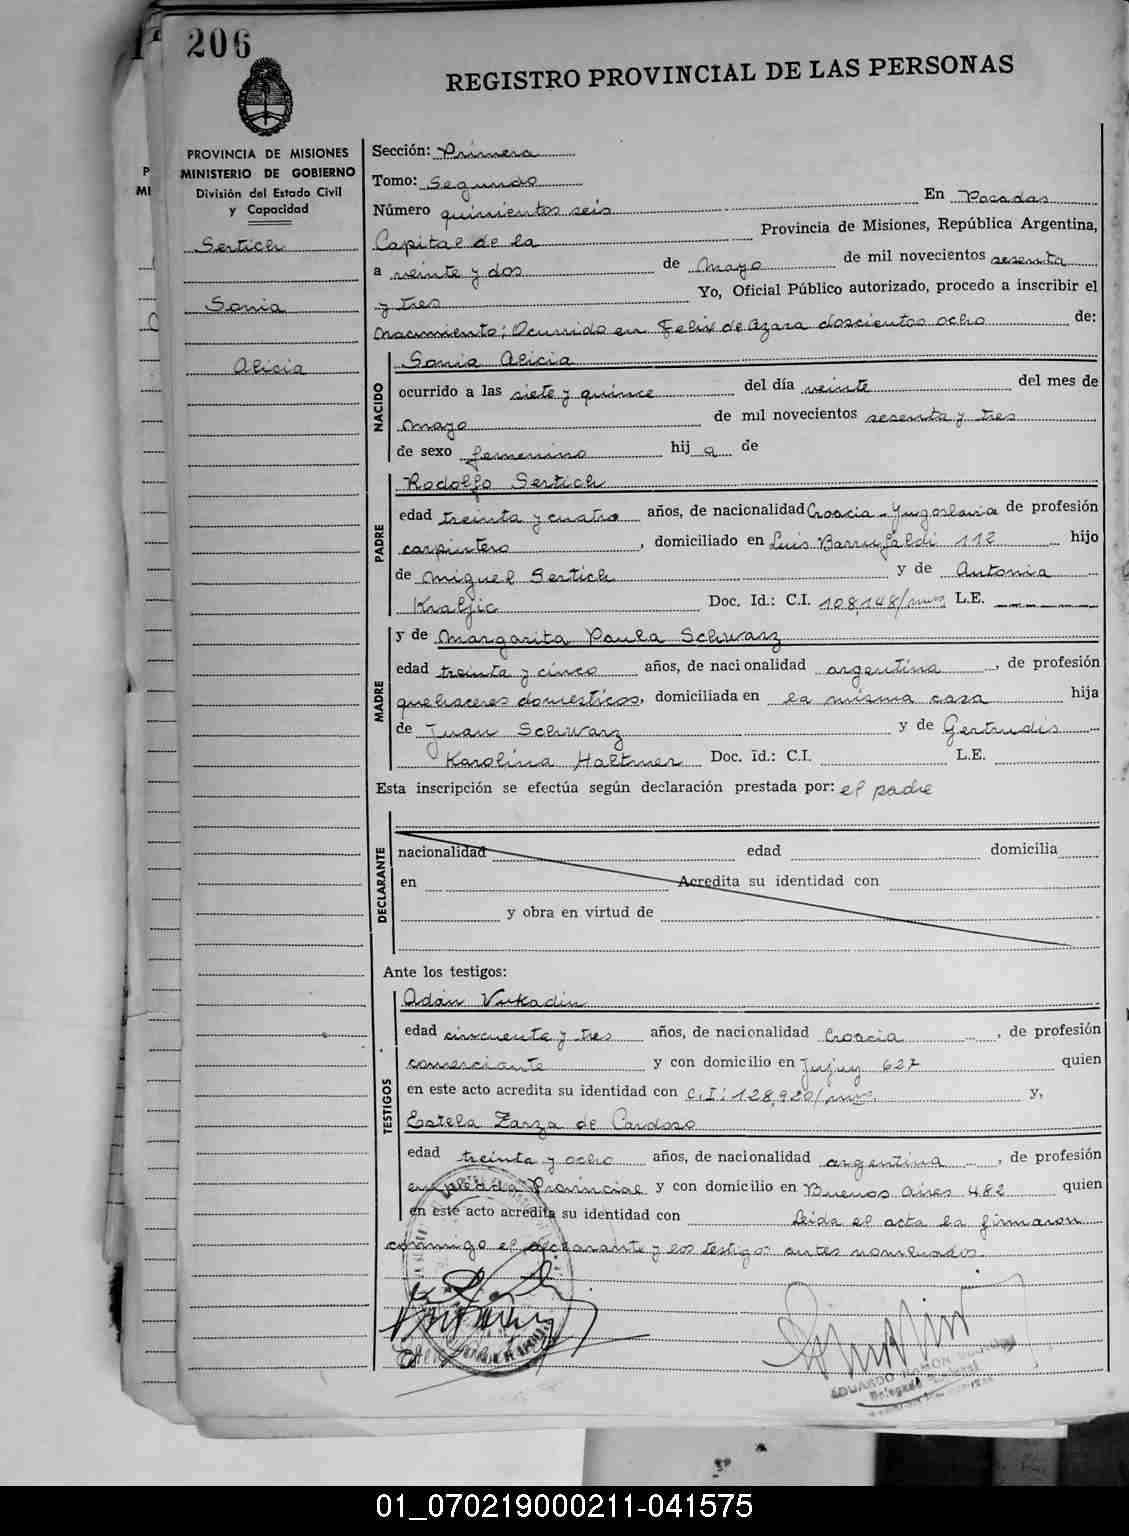 206
REGISTRO PROVINCIAL DE LAS PERSONAS
PROVINCIA DE MISIONES
MINISTERIO DE GOBIERNO
División del Estado Civil
y Capacidad
Sertich
Sonia
Alicia
Sección: Primera
Tomo: Segundo
Número quinientos seis En Posadas
Capital de la Provincia de Misiones, República Argentina,
a veinte y dos de Mayo de mil novecientos sesenta
y tres Yo, Oficial Público autorizado, procedo a inscribir el
nacimiento; Ocurrido en Felix de Azara doscientos ocho de:
NACIDO
Sonia Alicia
ocurrido a las siete y quince del día veinte del mes de
mayo de mil novecientos sesenta y tres
de sexo femenino hij a de
PADRE
Rodolfo Sertich
edad treinta y cuatro años, de nacionalidad Croacia - Yugoslavia de profesión
carpintero, domiciliado en Luis Barrufaldi 112 hijo
de Miguel Sertich y de Antonia
Kraljic Doc. Id.: C.I. 108,148/mnes L.E.
MADRE
y de Margarita Paula Schwarz
edad treinta y cinco años, de nacionalidad argentina, de profesión
quehaceres domesticos, domiciliada en la misma casa hija
de Juan Schwarz y de Gertrudis
Karolina Haltmer Doc. Id.: C.I. L.E.
Esta inscripción se efectúa según declaración prestada por: el padre
DECLARANTE
nacionalidad edad domicilia
en Acredita su identidad con
y obra en virtud de
Ante los testigos:
TESTIGOS
Adán Vukadin
edad cincuenta y tres años, de nacionalidad Croacia, de profesión
comerciante y con domicilio en Jujuy 627 quien
en este acto acredita su identidad con C.I: 128,920/mnes. y,
Estela Zarza de Cardozo
edad treinta y ocho años, de nacionalidad argentina, de profesión
empleada Provincial y con domicilio en Buenos Aires 482 quien
en este acto acredita su identidad con Leida el acta la firmaron
conmigo el declarante y los testigos antes nombrados.
EDUARDO RAMON
Delegado
01_070219000211-041575